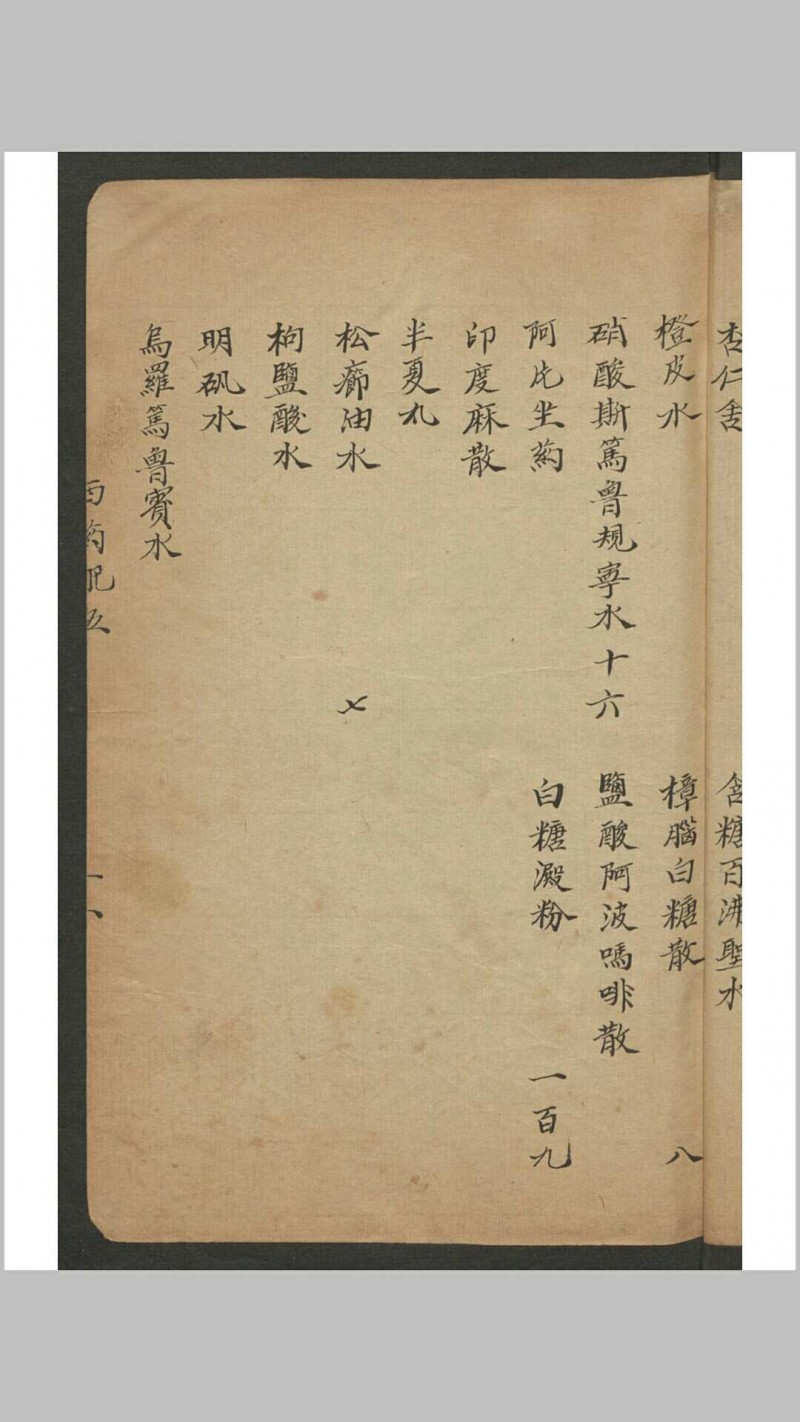 杏仁舍
含糖百沸聖水
橙皮水
樟腦白糖散 八
硝酸斯篤魯規寧水十六
鹽酸阿波嗎啡散
阿片坐葯
白糖澱粉 一百九
印度麻散
半夏丸
松㾿油水 〤
枸鹽酸水
明矾水
烏羅篤魯賓水
西葯配伍